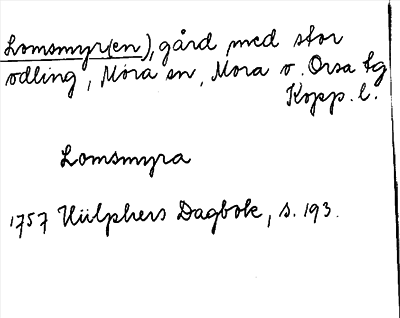 Lomsmyr(en), gård med stor
odling, Mora sn, Mora o. Orsa tg
Kopp. l.
Lomsmyra
1757 Hülphers Dagbok, s. 193.